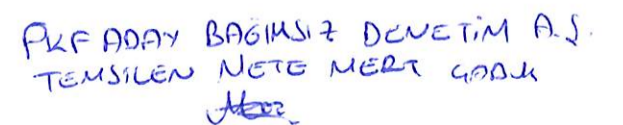 PKF ADAY BAĞIMSIZ DENETİM A.Ş.
TEMSİLEN METE MERT